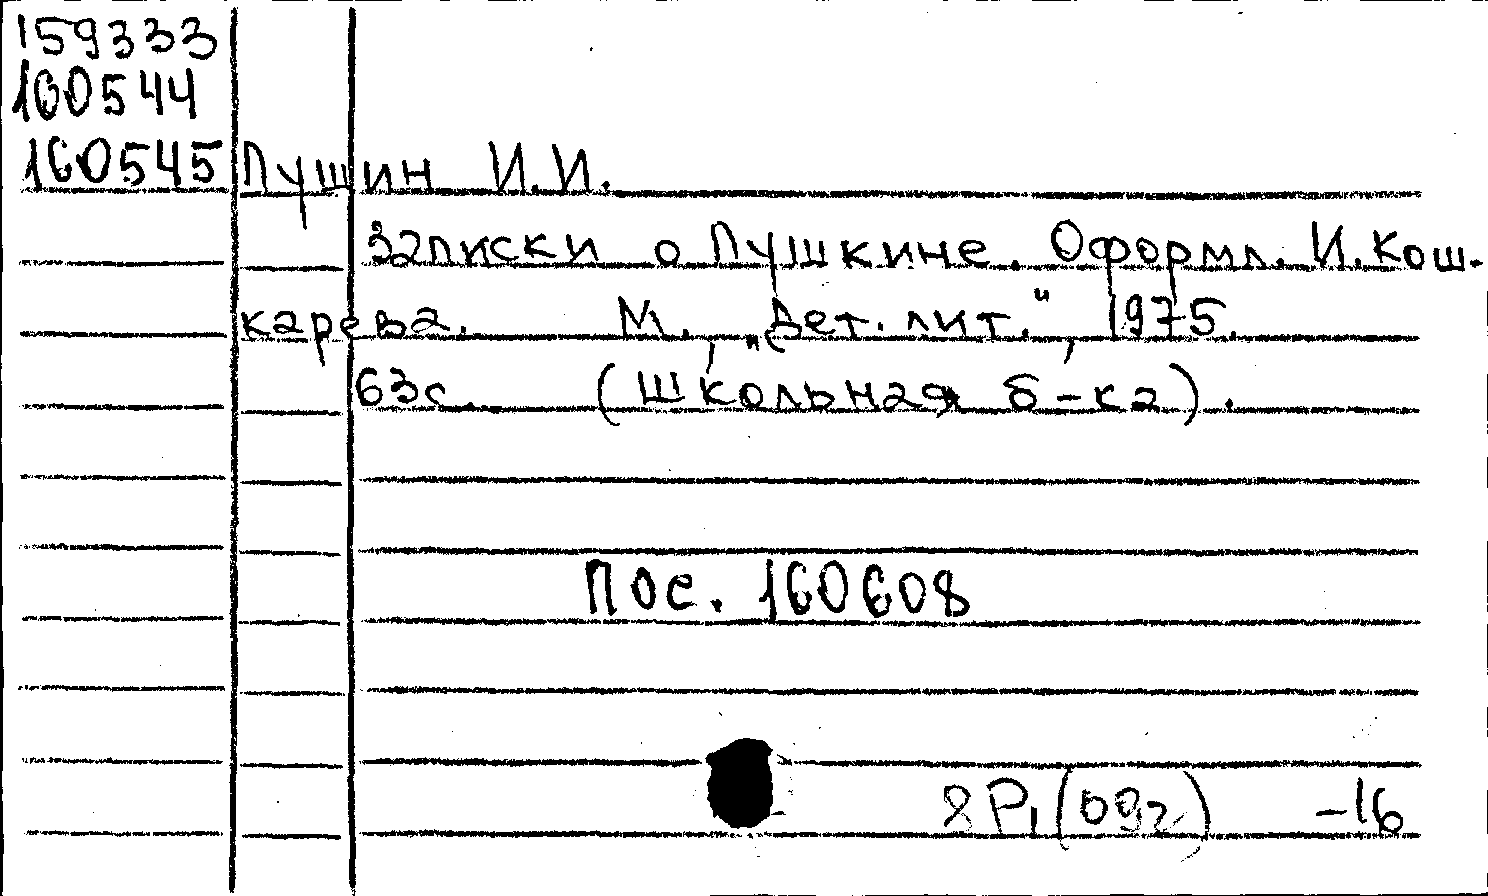 159333
160544
160545 Пушин И.И.
Записки о Пушкине. Оформл. И. Кош-
карева. М., „Дет. лит.", 1975.
63с. (Школьная б-ка).
Пос. 160608
8Р1(092) -16